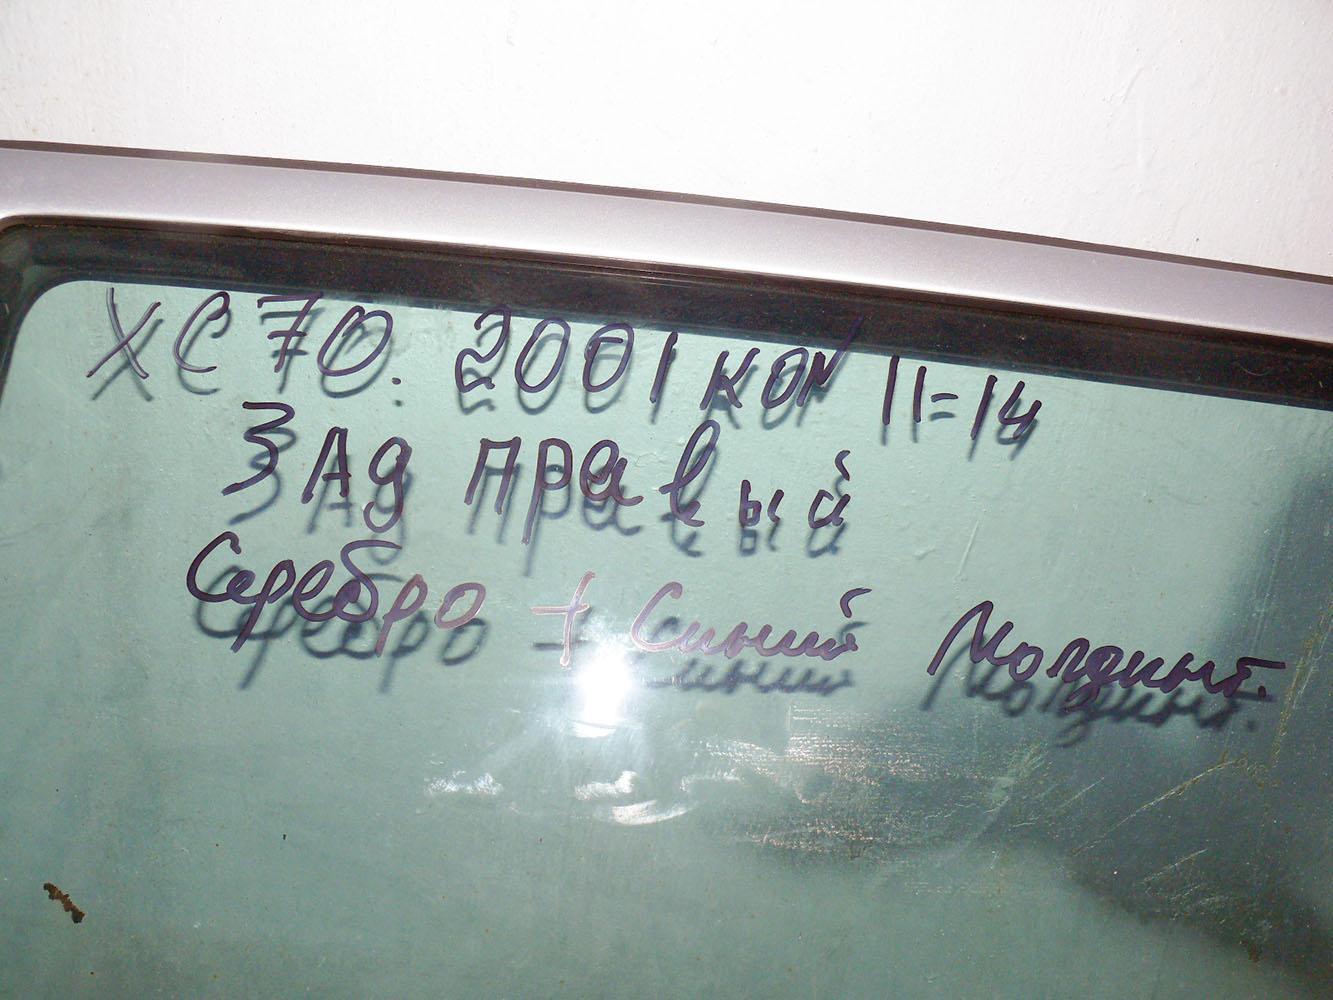 XC 70. 2001 кон 11=14
Зад правый
Серебро + Синий Молдинг.